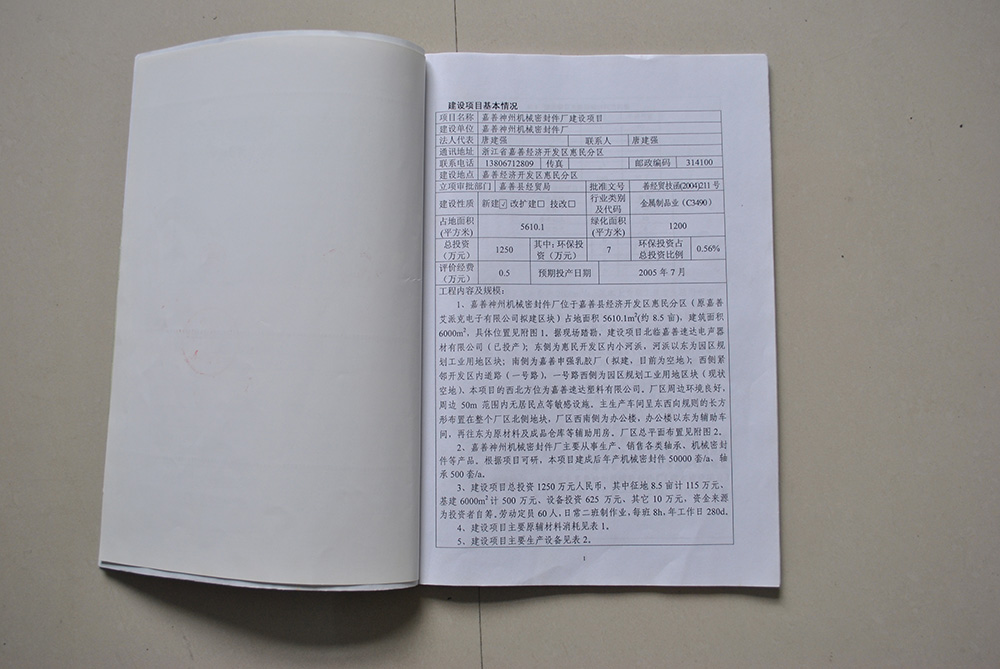 建设项目基本情况
项目名称 嘉善神州机械密封件厂建设项目
建设单位 嘉善神州机械密封件厂
法人代表 唐建强 联系人 唐建强
通讯地址 浙江省嘉善经济开发区惠民分区
联系电话 13806712809 传真 邮政编码 314100
建设地点 嘉善经济开发区惠民分区
立项审批部门 嘉善县经贸局 批准文号 善经贸技函(2004)211号
建设性质 新建☑ 改扩建☐ 技改☐ 行业类别及代码 金属制品业(C3490)
占地面积(平方米) 5610.1 绿化面积(平方米) 1200
总投资(万元) 1250 其中:环保投资(万元) 7 环保投资占总投资比例 0.56%
评价经费(万元) 0.5 预期投产日期 2005年7月
工程内容及规模:
1、嘉善神州机械密封件厂位于嘉善县经济开发区惠民分区(原嘉善
艾派克电子有限公司拟建区块)占地面积 5610.1m²(约 8.5 亩),建筑面积
6000m²,具体位置见附图 1。据现场踏勘,建设项目北临嘉善速达电声器
材有限公司(已投产);东侧为惠民开发区内小河浜,河浜以东为园区规
划工业用地区块;南侧为嘉善申强乳胶厂(拟建,目前为空地);西侧紧
邻开发区内道路(一号路),一号路西侧为园区规划工业用地区块(现状
空地)。本项目的西北方位为嘉善速达塑料有限公司。厂区周边环境良好,
周边 50m 范围内无居民点等敏感设施。主生产车间呈东西向规则的长方
形布置在整个厂区北侧地块,厂区西南侧为办公楼,办公楼以东为辅助车
间,再往东为原材料及成品仓库等辅助用房。厂区总平面布置见附图 2。
2、嘉善神州机械密封件厂主要从事生产、销售各类轴承、机械密封
件等产品。根据项目可研,本项目建成后年产机械密封件 50000 套/a、轴
承 500 套/a。
3、建设项目总投资 1250 万元人民币,其中征地 8.5 亩计 115 万元、
基建 6000m²计 500 万元、设备投资 625 万元、其它 10 万元,资金来源
为投资者自筹。劳动定员 60 人,日常二班制作业,每班 8h,年工作日 280d。
4、建设项目主要原辅材料消耗见表 1。
5、建设项目主要生产设备见表 2。
1